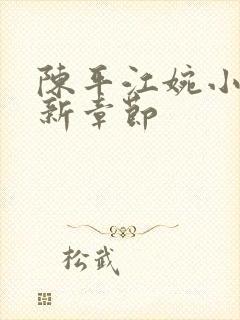 陈平江婉小
新章节
松武